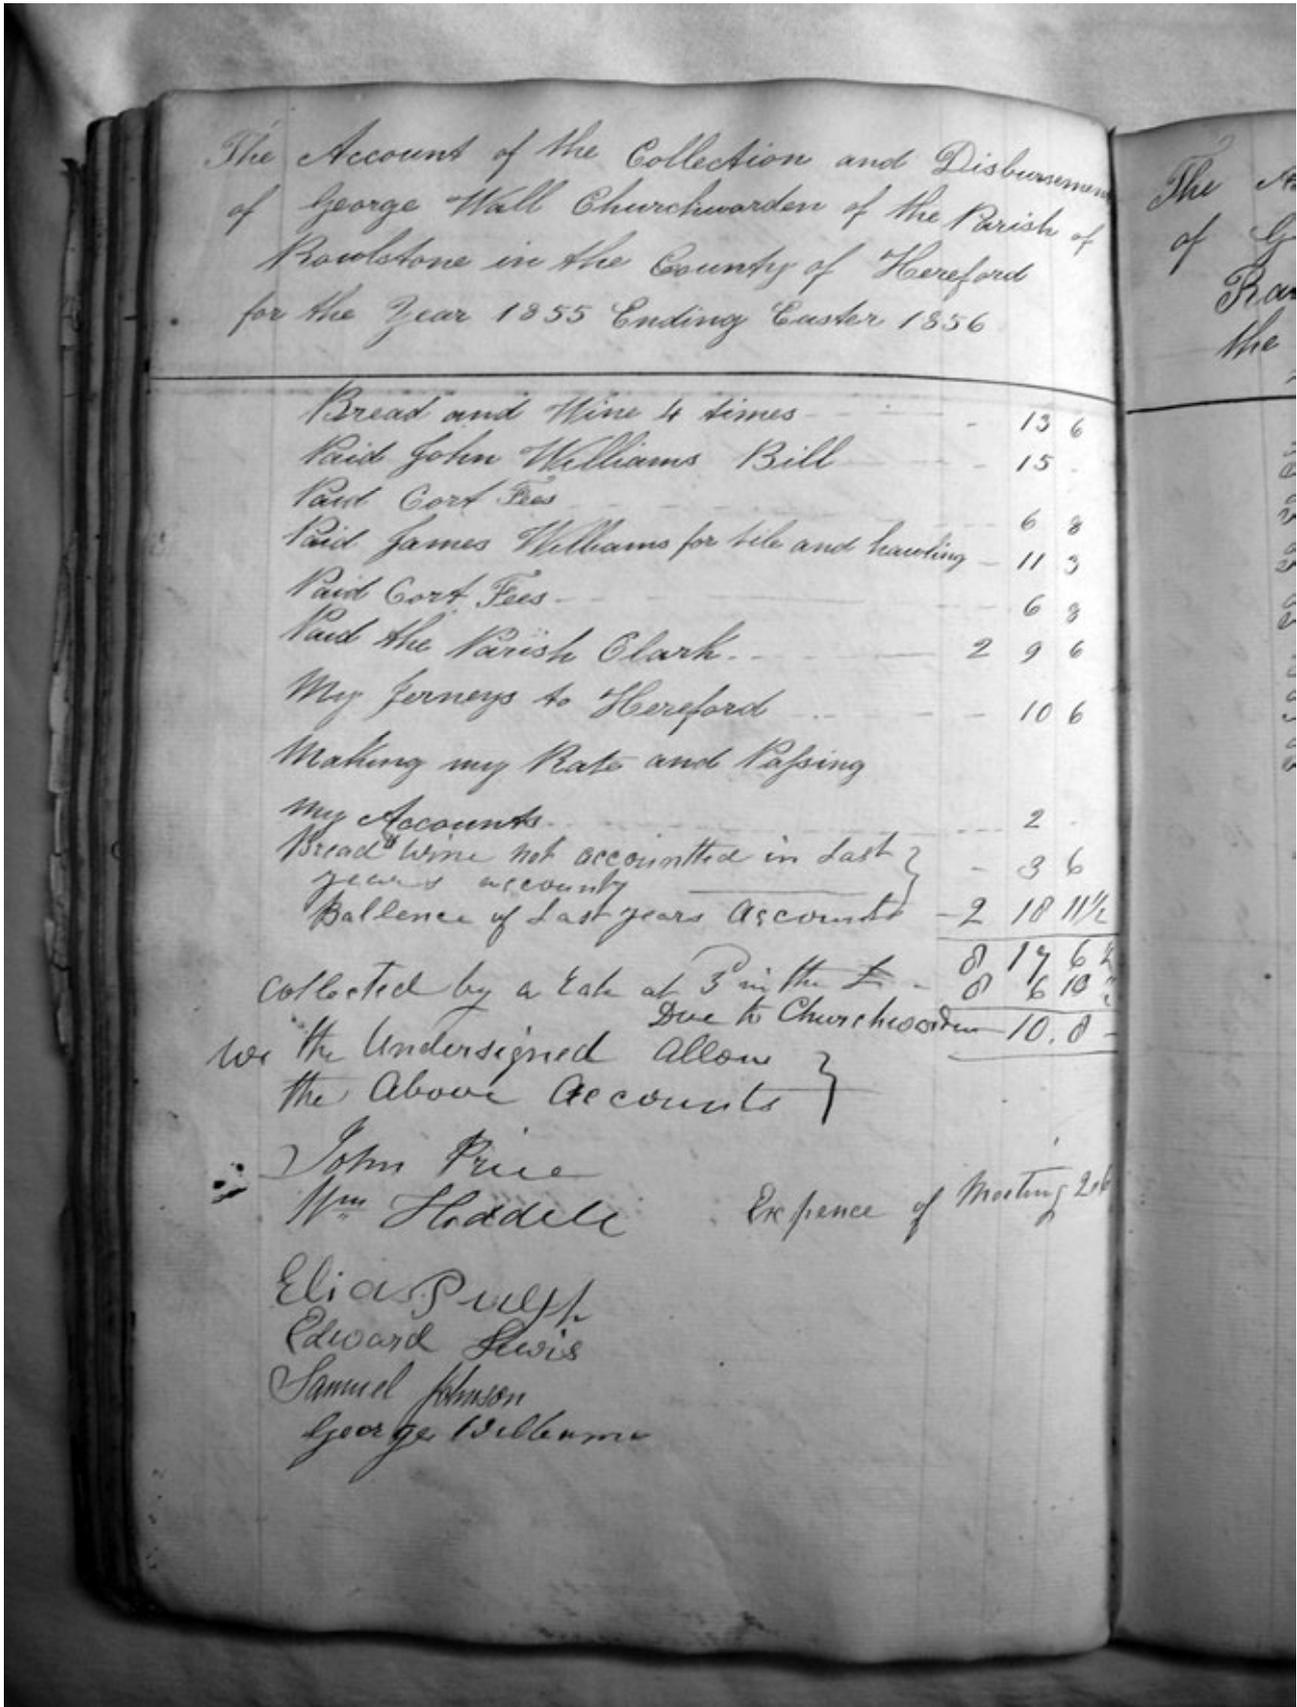 The Account of the Collection and Disbursemen
of George Wall Churchwarden of the Parish of
Rowlstone in the County of Hereford
for the Year 1855 Ending Easter 1856
Bread and Wine 4 times - 13 6
Paid John Williams Bill - 15
Paid Cort Fees 6 8
Paid James Williams for tile and hawling - 11 3
Paid Cort Fees 6 8
Paid the Parish Clark 2 9 6
My Jerneys to Hereford - 10 6
Making my Rate and Passing
my Accounts 2
Bread & Wine not accountted in Last } - 3 6
years account
Ballence of Last years Accounts - 2 18 11½
8 17 6½
collected by a Rate at 3 in the £ - 8 6 10½
Due to Churchwarden - 10. 8 -
We the Undersigned Allow }
the Above Accounts
John Price
Wm
Expence of Meeting 2.6
Elia Pugh
Edward Lewis
Samuel Johnson
George Williams
The
of
the